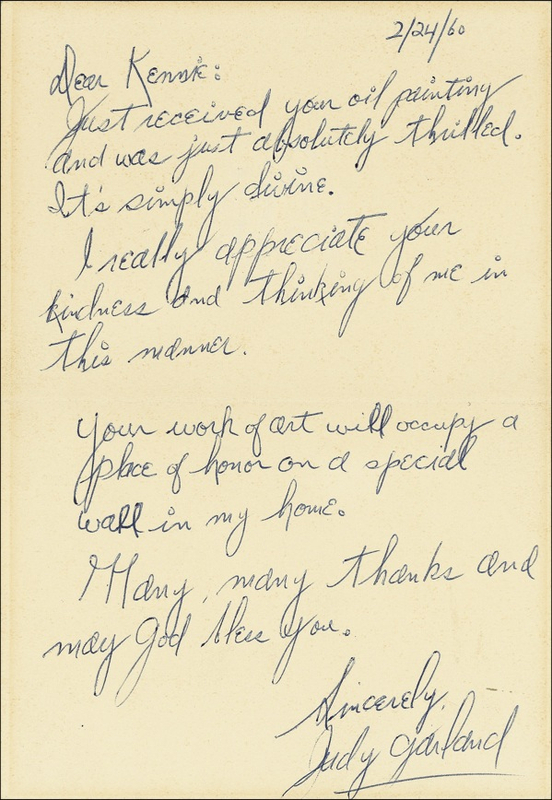 2/24/60
Dear Kennie:
Just received your oil painting
and was just absolutely thrilled.
It's simply divine.
I really appreciate your
kindness and thinking of me in
this manner.
Your work of art will occupy a
place of honor on a special
wall in my home.
Many, many thanks and
may God bless you.
Sincerely,
Judy Garland